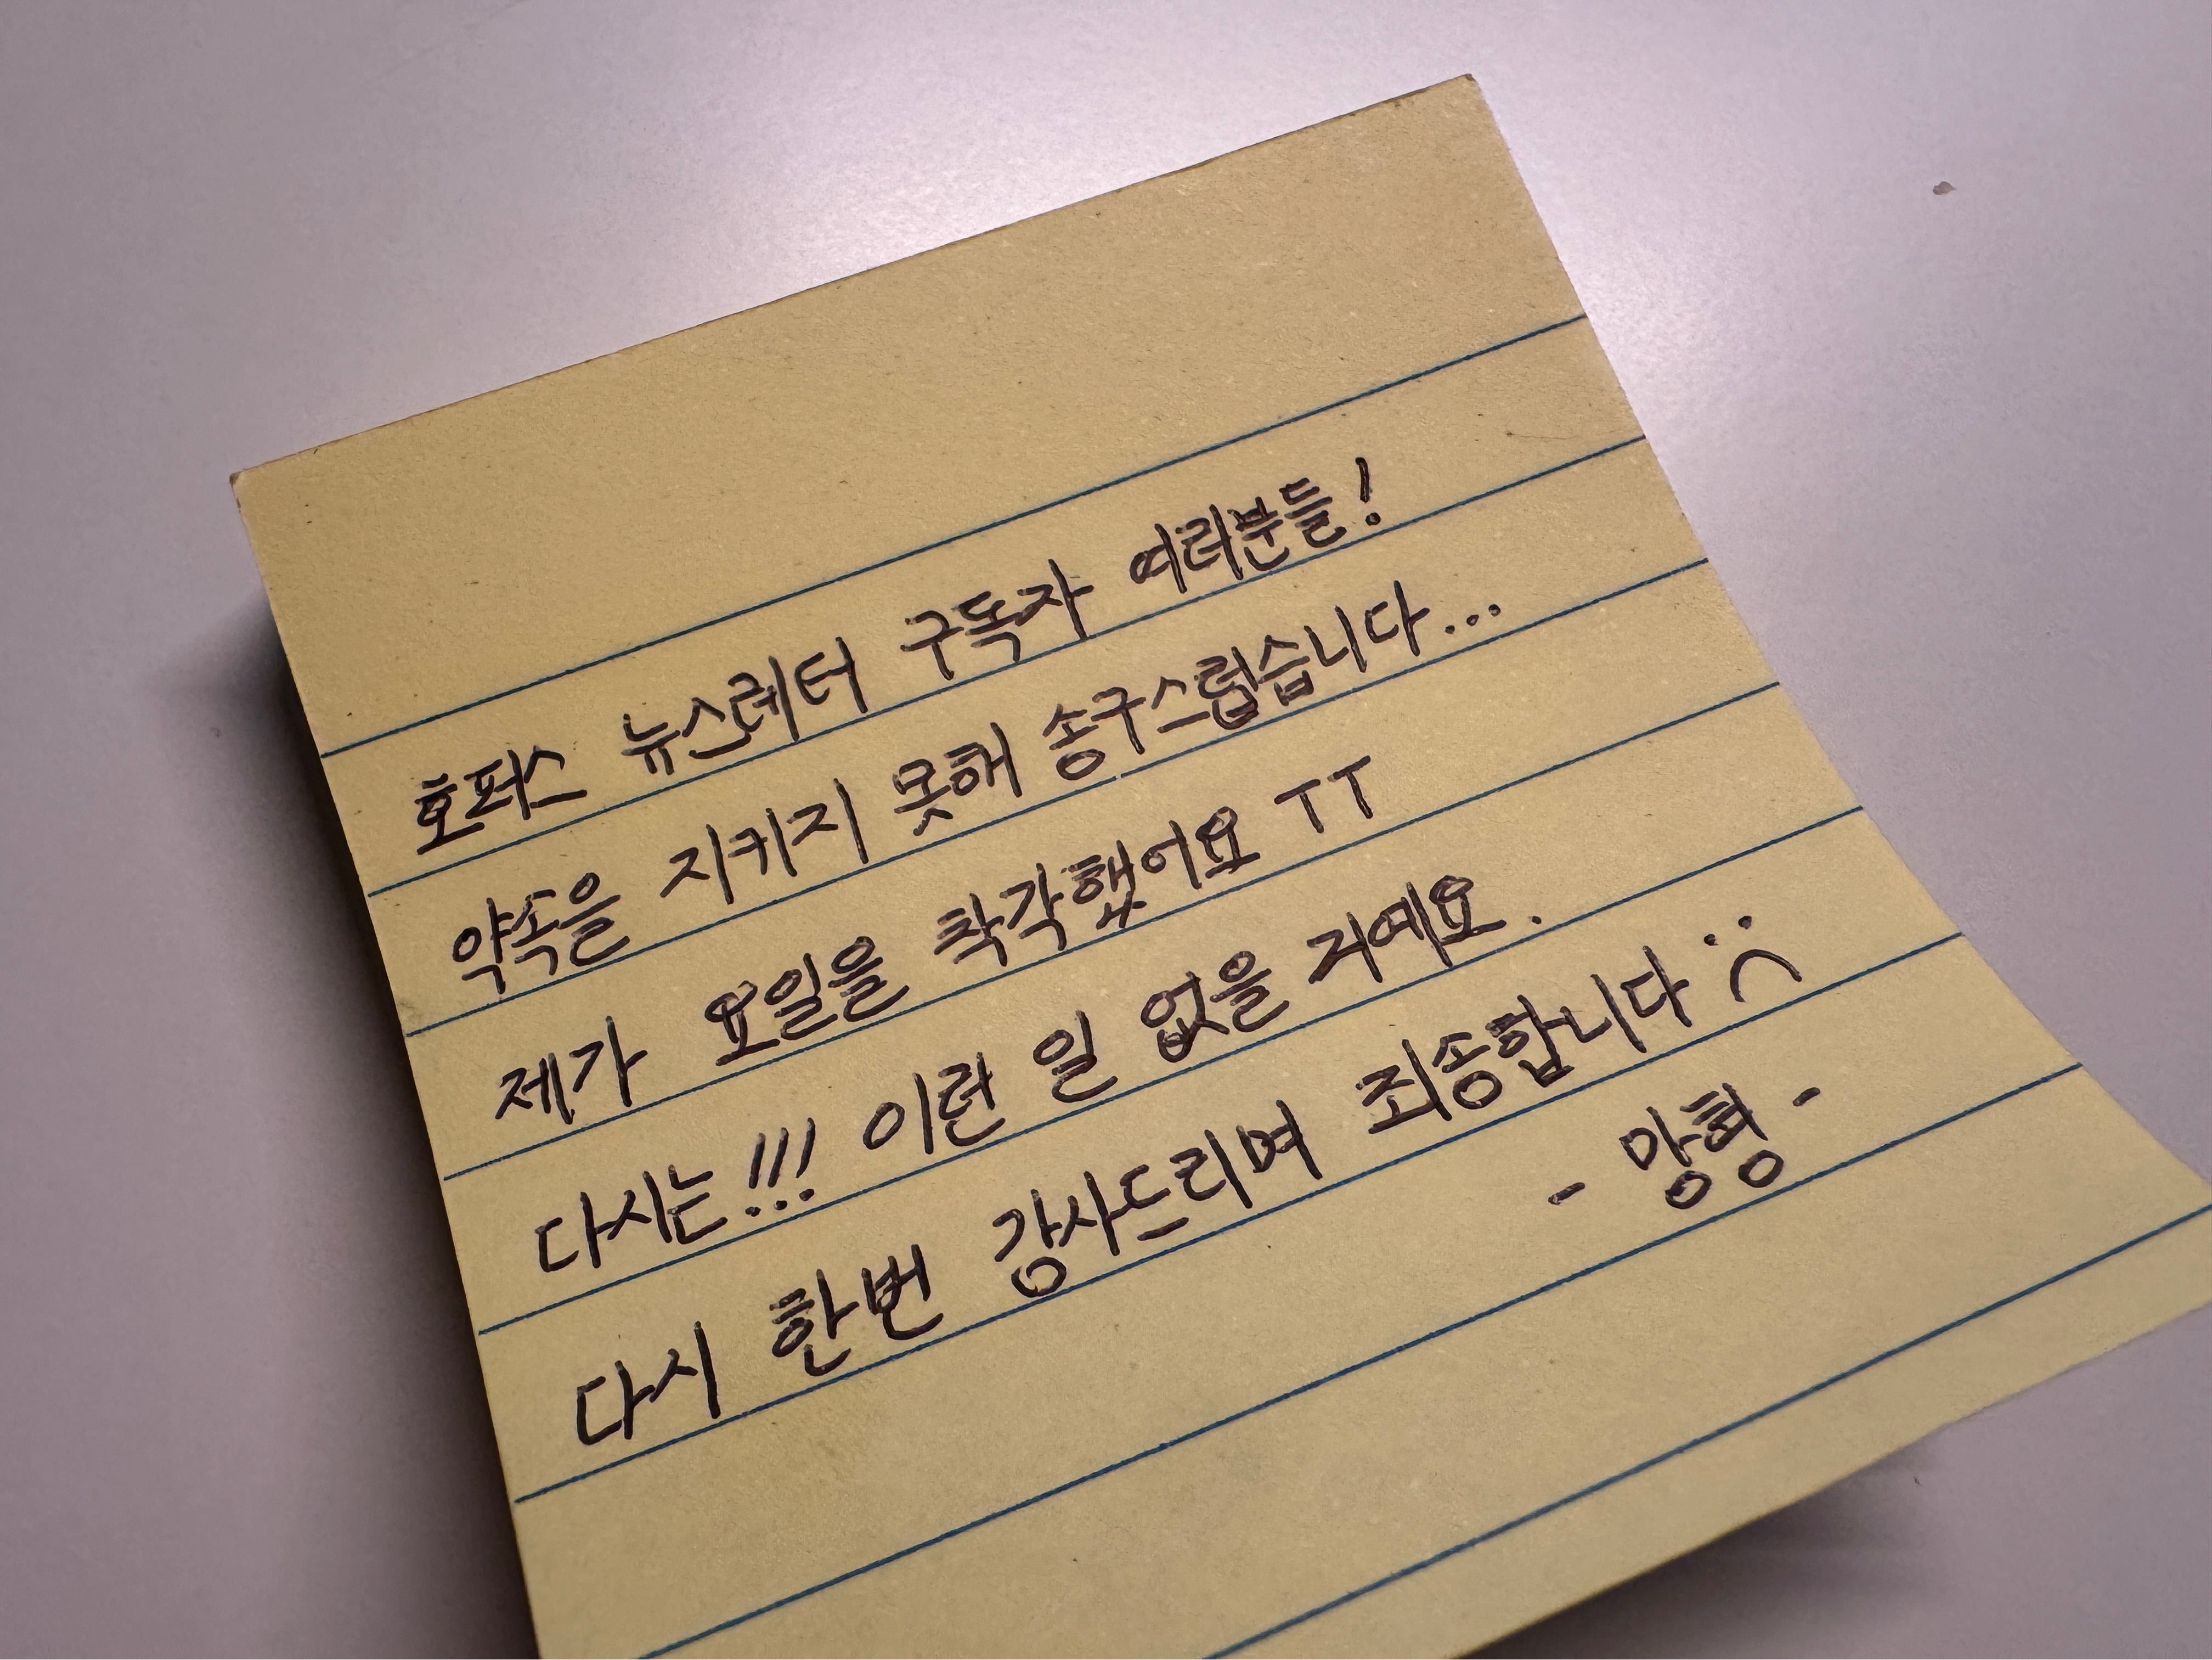 호퍼스 뉴스레터 구독자 여러분들!
약속을 지키지 못해 송구스럽습니다...
제가 요일을 착각했어요 TT
다시는!!! 이런 일 없을 거예요.
다시 한번 감사드리며 죄송합니다 :(
- 망평 -